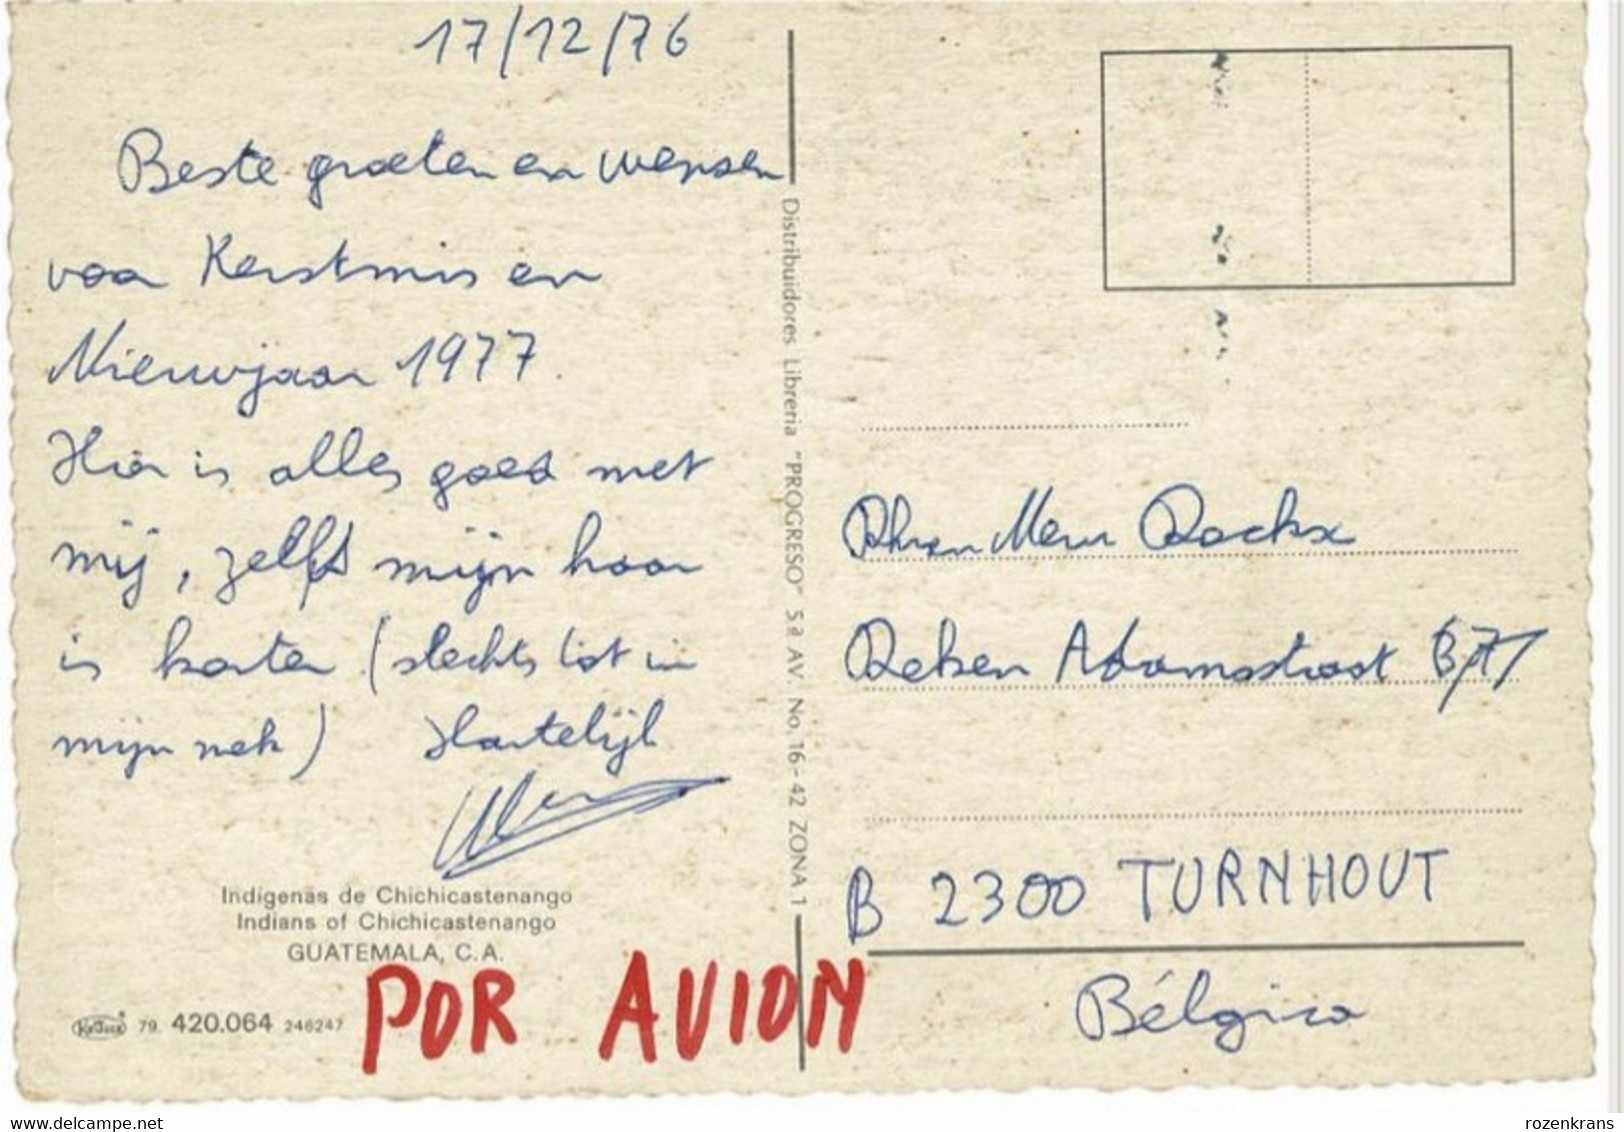 17/12/76
Beste groeten en wensen
voor Kerstmis en
Nieuwjaar 1977.
Hier is alles goed met
mij, zelfs mijn haar
is korter (slechts tot in
mijn nek) Hartelijk
Indígenas de Chichicastenango
Indians of Chichicastenango
GUATEMALA, C.A.
79. 420.064 246247
POR AVION
Distribuidores Libreria "PROGRESO" 5ª AV. No. 16-42 ZONA 1
Rockx
Deken Adamsstraat
B 2300 TURNHOUT
Bélgica
www.delcampe.net
rozenkrans